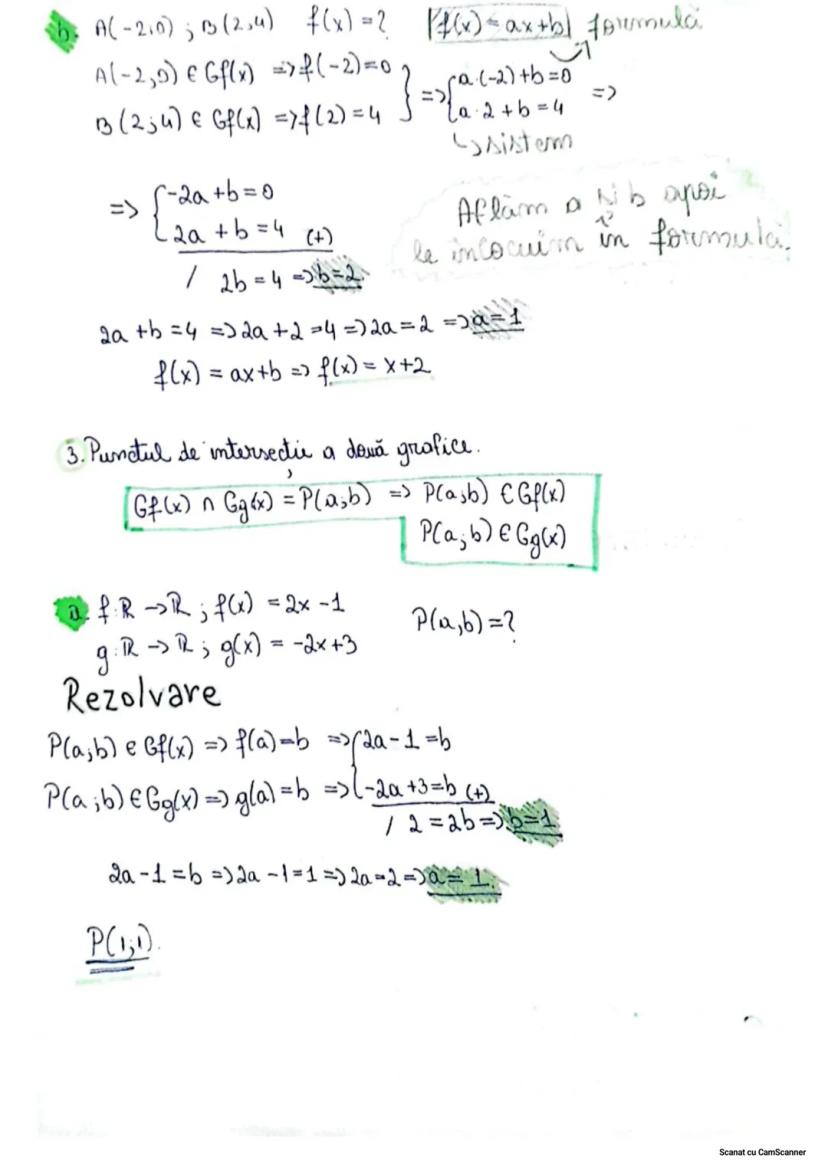 b. A(-2;0) ; B(2;4) f(x)=? f(x)=ax+b formulă
A(-2;0) ∈ Gf(x) => f(-2)=0 } => { a·(-2)+b=0 =>
B(2;4) ∈ Gf(x) => f(2)=4 a·2+b=4
↳ sistem
=> { -2a+b=0
2a+b=4 (+)
/ 2b=4 => b=2
Aflăm a și b apoi
le înlocuim în formulă.
2a+b=4 => 2a+2=4 => 2a=2 => a=1
f(x)=ax+b => f(x)=x+2
3. Punctul de intersecție a două grafice.
Gf(x) ∩ Gg(x) = P(a;b) => P(a;b) ∈ Gf(x)
P(a;b) ∈ Gg(x)
a. f:R→R ; f(x)=2x-1
g:R→R ; g(x)=-2x+3
P(a,b)=?
Rezolvare
P(a;b) ∈ Gf(x) => f(a)=b => { 2a-1=b
P(a;b) ∈ Gg(x) => g(a)=b => -2a+3=b (+)
/ 2=2b => b=1
2a-1=b => 2a-1=1 => 2a=2 => a=1.
P(1;1).
Scanat cu CamScanner